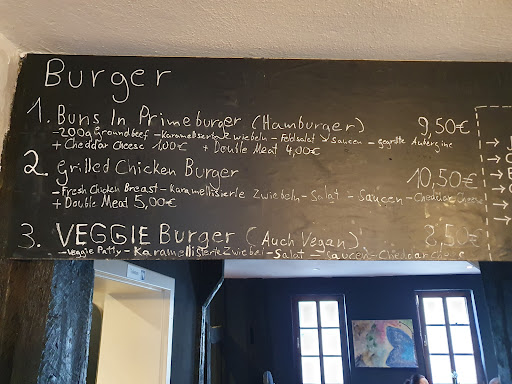 Burger
1. Buns In Primeburger (Hamburger) 9,50€
-200g Groundbeef - Karamellisierte Zwiebeln - Feldsalat - Saucen - gegrillte Aubergine
+ Cheddar Cheese 1,00€ + Double Meat 4,00€
2. Grilled Chicken Burger 10,50€
- Fresh Chicken Breast - Karamellisierte Zwiebeln - Salat - Saucen - Cheddar Cheese
+ Double Meat 5,00€
3. VEGGIE Burger (Auch Vegan) 8,50€
- Veggie Patty - Karamellisierte Zwiebel - Salat - Saucen - Cheddar